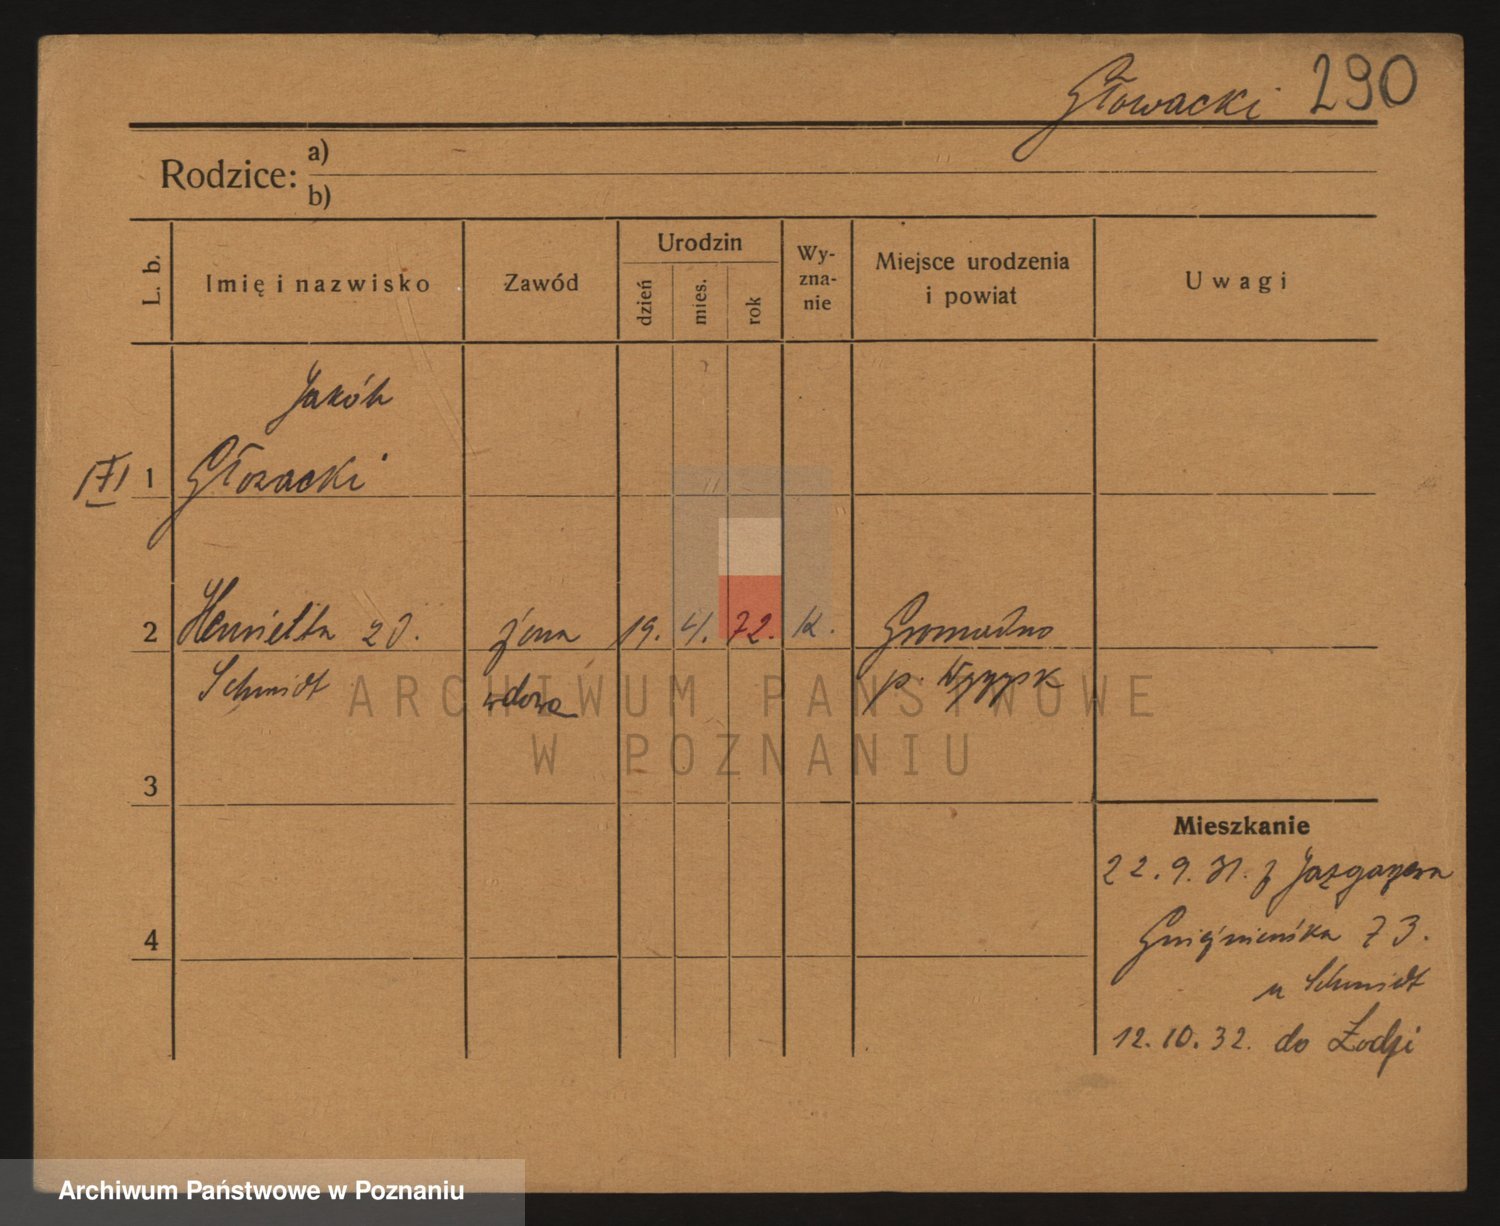 Głowacki 290
Rodzice: a)
b)
L. b.
Imię i nazwisko
Zawód
Urodzin
dzień
mies.
rok
Wy-
zna-
nie
Miejsce urodzenia
i powiat
Uwagi
Jakób
1 Głowacki
2 Henrietta zd. żona 19. 4. 72. k. Gromadno
Schmidt wdowa p. Wyrzysk
3
4
Mieszkanie
22.9.31. z
Gnieźnieńska 73.
u Schmidt
12.10.32. do Łodzi
ARCHIWUM PAŃSTWOWE
W POZNANIU
Archiwum Państwowe w Poznaniu